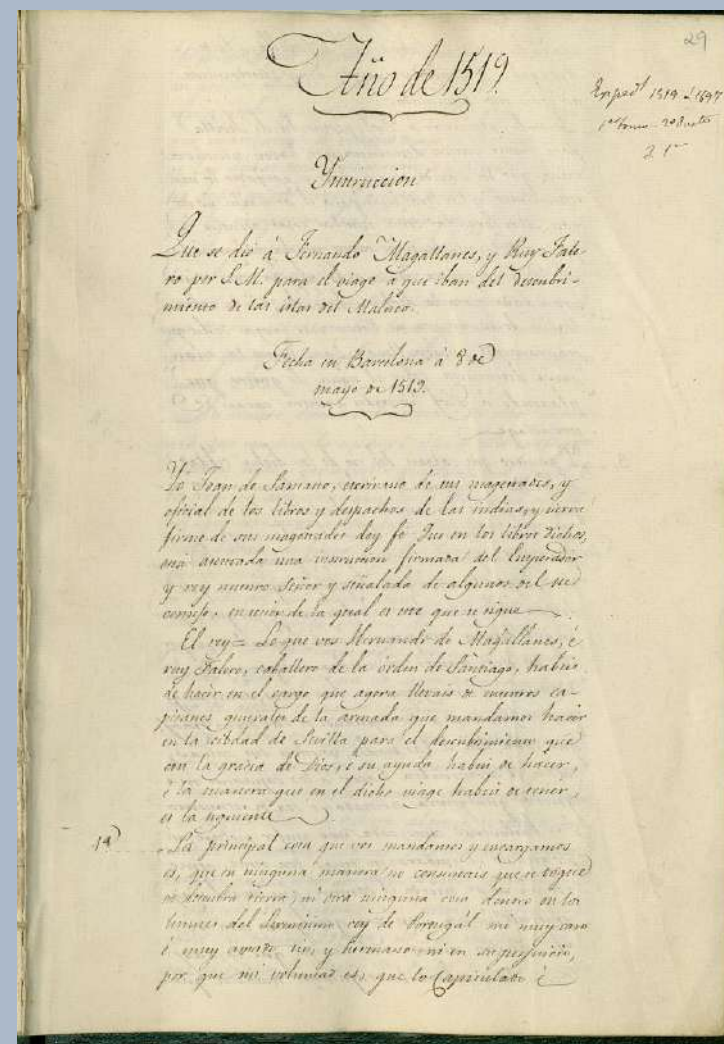 29
Año de 1519.
1519 á 1697
Ynstruccion
Que se dió á Fernando Magallanes, y Ruy Fale-
ro por S.M. para el viage á que iban del descubri-
miento de las islas del Maluco.
Fecha en Barcelona á 8 de
mayo de 1519.
Yo Joan de Samano, escrivano de sus magestades, y
oficial de los libros y despachos de las indias, y
firme de sus magestades doy fe que en los libros dichos,
está asentada una instrucion firmada del Emperador
y rey nuestro Señor y señalada de algunos del su
consejo, su tenor de la qual es este que se sigue
El rey = Lo que vos Hernando de Magallanes, é
ruy Falero, caballero de la órden de Santiago, habeis
de hacer en el cargo que agora llevais de nuestros ca-
pitanes generales de la armada que mandamos hacer
en la cibdad de Sevilla para el descubrimiento que
con la gracia de Dios, é su ayuda habeis de hacer,
é la manera que en el dicho viage habeis de tener,
es la siguiente
1ª La principal cosa que vos mandamos y encargamos
es, que en ninguna manera no consintais que se toque
ni descubra tierra, ni otra ninguna cosa dentro en los
limites del Serenisimo rey de Portugál mi muy caro
é muy amado tio, y hermano ni en su perjuicio,
por que mi voluntad es, que lo Capitulado é